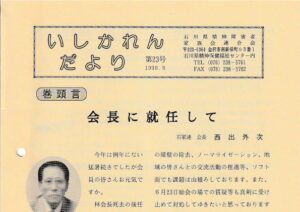 いしかれん
だより
第23号
1998.8
石川県精神障害者
家族会連合会
石川県精神保健福祉センター内
TEL (076) 238-5761
FAX (076) 238-5762
巻頭言
会長に就任して
石家連 会長 西出外次
今年は例年にない
猛暑続きでしたが会
員の皆さんお元気で
すか。
林会長死去の後任
の障壁の除去、ノーマライゼーション、地
域の皆さんとの交流活動の推進等、ソフト
面でも課題は山積みしております。また、
6月23日総会の場での質疑等も真剣に受け
止めて対処してゆきたいと思っております